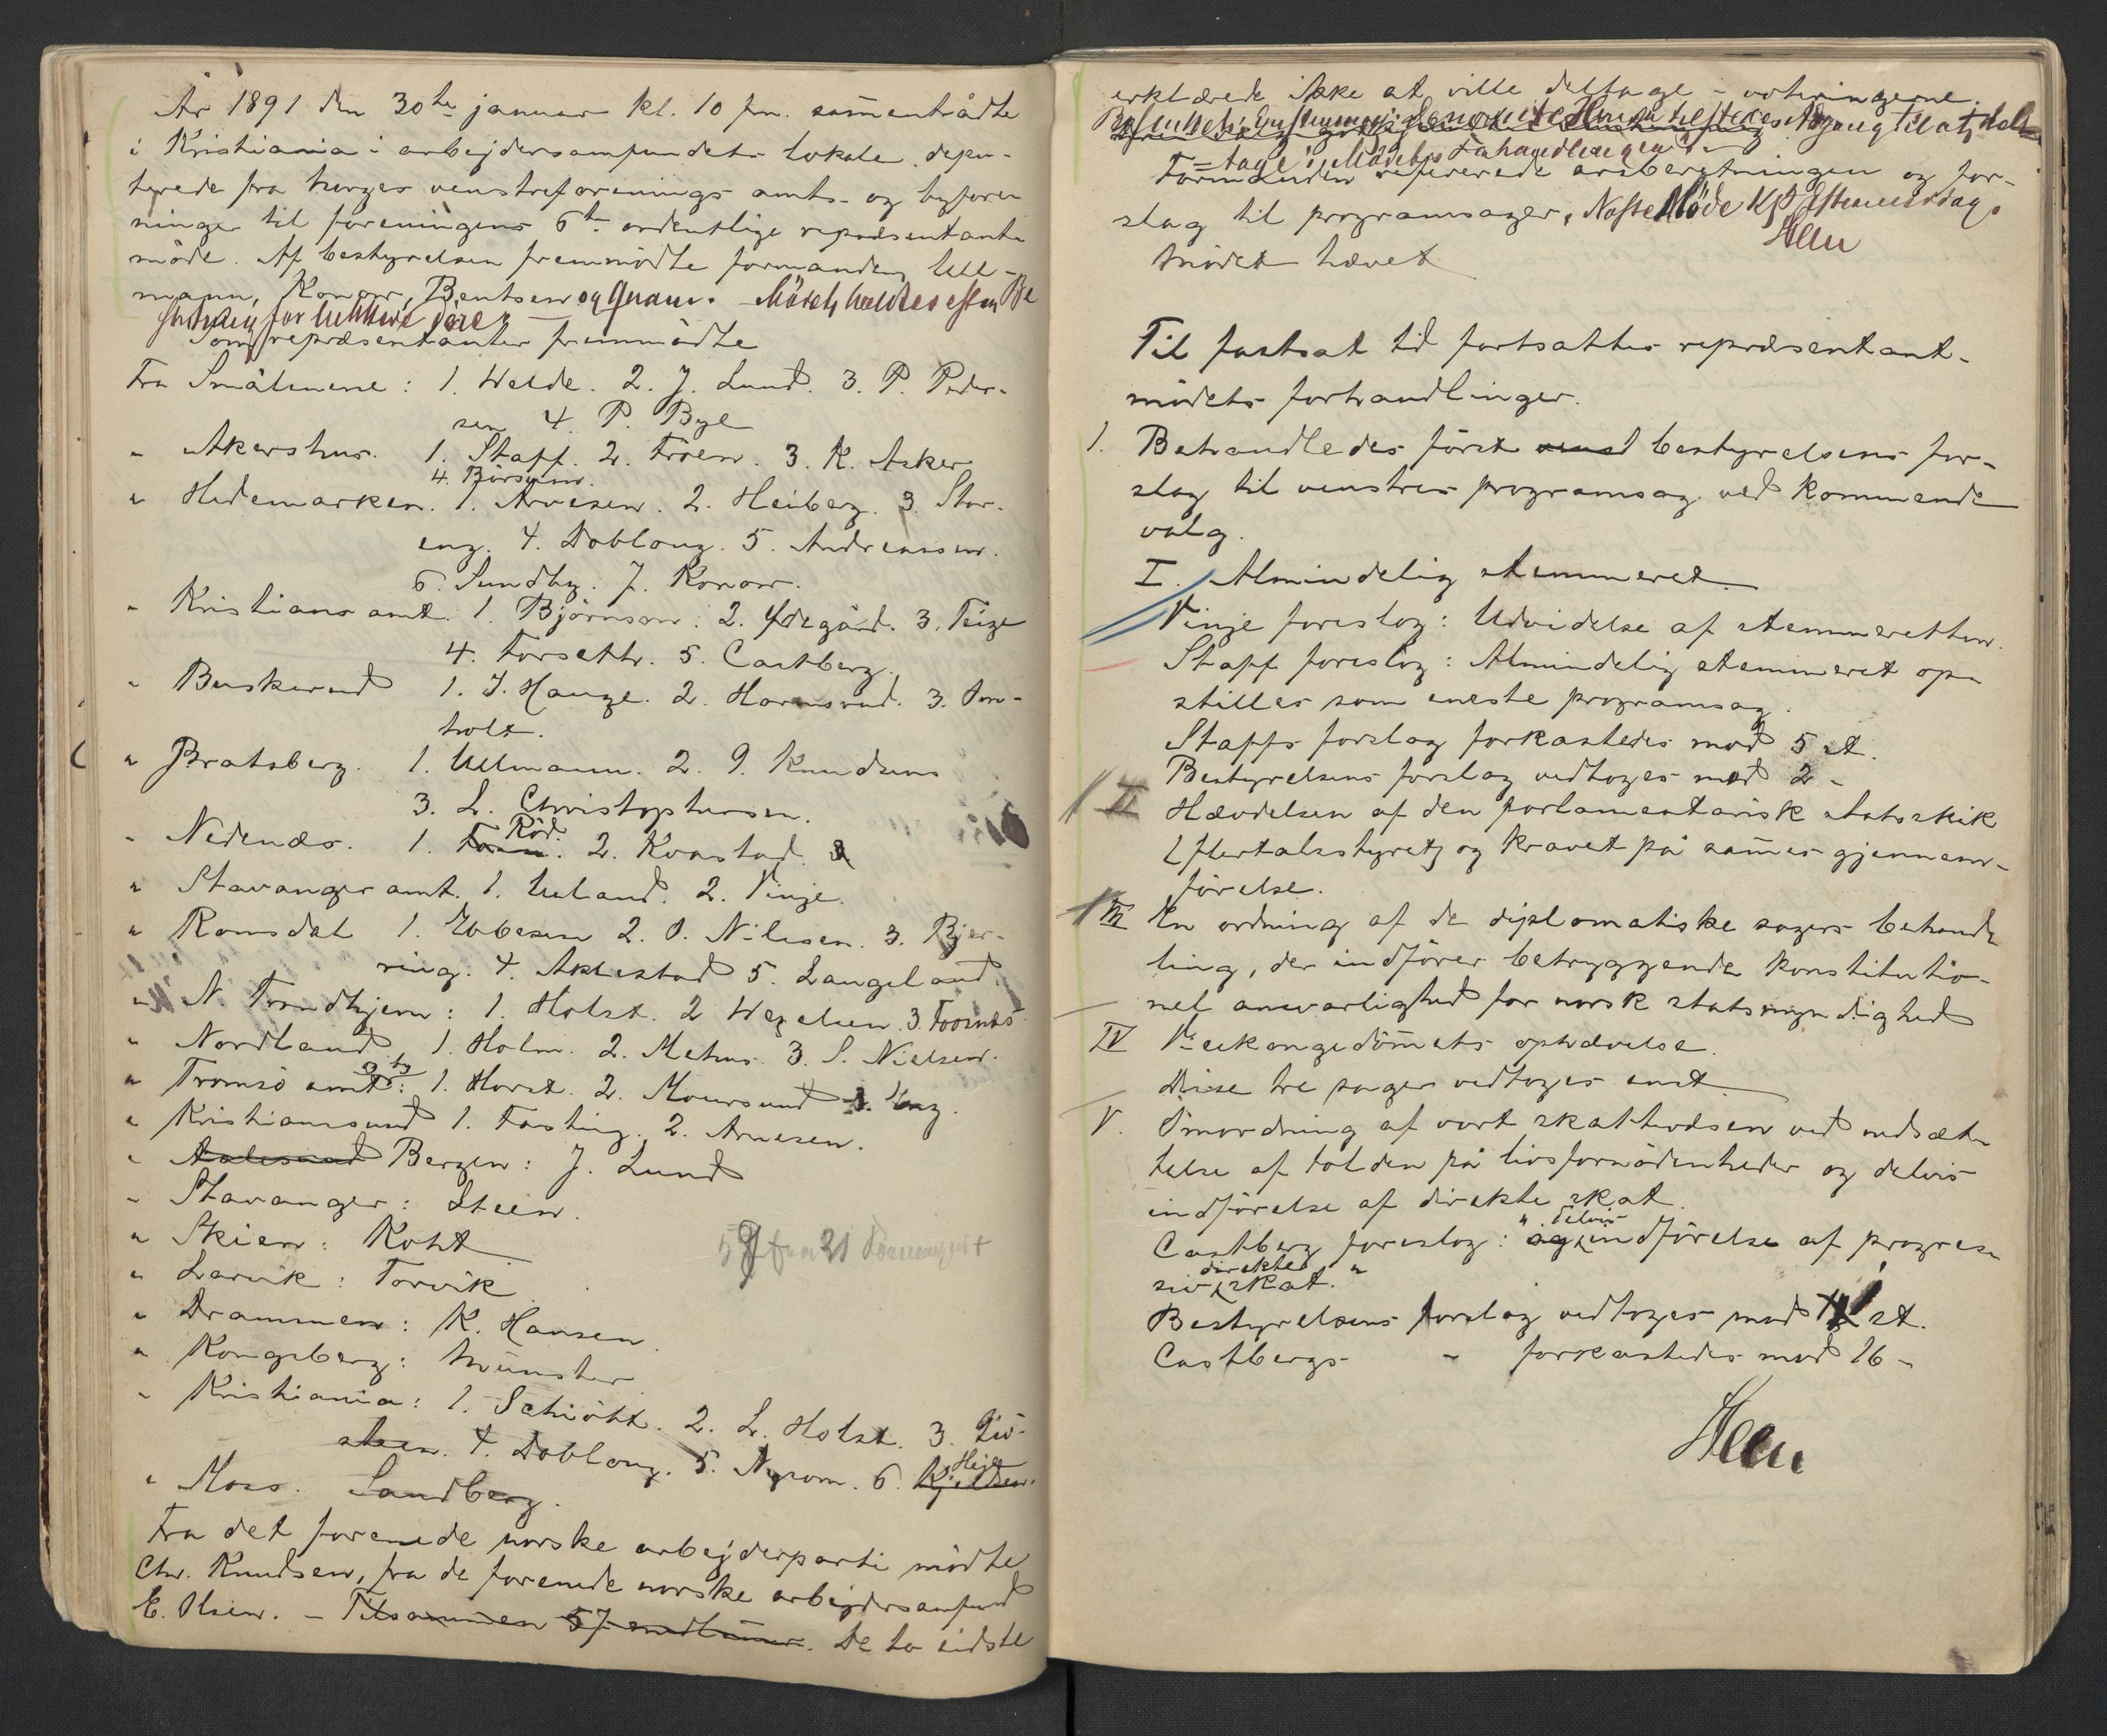 År 1891 den 30te januar kl. 10 fm. sammentrådte
i Kristiania i arbejdersamfundets lokale depu-
terede fra Norges venstreforenings amts- og byfore-
ninger til foreningens 6te ordentlige repræsentant-
möde. Af bestyrelsen fremmödte formanden, Ull-
mann, Konow, Bentsen og Qvam. – Mödet holdtes efter Be
slutning for lukkede döre.
Som repræsentanter fremmödte
Fra Smålenene: 1. Welde. 2. J. Lund. 3. P. Peder-
sen 4. P. Byl
" Akershus. 1. Stapf. 2. Fröen. 3. K. Asker
4. Börsum.
" Hedemarken. 1. Arvesen. 2. Heiberg. 3. Stor-
eng. 4. Dobloug. 5. Andreassen.
6. Sundby. 7. Konow.
" Kristians amt. 1. Björnson. 2. Ödegård. 3. Teige
4. Forseth. 5. Castberg.
" Buskerud 1. J. Hauge. 2. Hornsrud. 3.
holt.
" Bratsberg. 1. Ullmann. 2. G. Knudsen
3. L. Christophersen.
" Nedenæs. 1. Röd. 2. Kvastad.
" Stavanger amt. 1. Ueland. 2. Vinje.
" Romsdal 1. Ebbesen 2. O. Nilssen. 3. Bjer-
ring. 4. Aklestad 5. Langeland.
" N. Trondhjem: 1. Holst. 2 Wexelsen. 3. Foosnæs.
" Nordland 1. Holm. 2. Mehus. 3. S. Nielsen.
" Tromsö amt og by: 1. Horst. 2. Moursund
" Kristiansund 1. Fasting. 2. Arnesen.
" Aalesund Bergen: J. Lund
" Stavanger: Steen.
" Skien: Koht
57 fra 21
" Larvik: Torvik
" Drammen: K. Hansen
" Kongsberg: Münster
" Kristiania: 1. Schiött. 2. L. Holst. 3. Qvi-
steen. 4. Doblong. 5. Nysom. 6. Kjeldsen.
" Moss. Sandberg.
Fra det forenede norske arbejderparti mödte
Chr. Knudsen, fra de forenede norske arbejdersamfund
E. Olsen. – Tilsammen 57 medlemmer. De to sidste
erklærede ikke at ville deltage i voteringerne.
tilstedes Adgang til at del
tage i Mödets Forhandlinger.
Formanden refererede årsberetningen og for-
slag til programsager. Næste Möde Kl 5 Eftermiddag.
Mödet hævet
Steen
Til fastsat tid fortsattes repræsentant-
mödets forhandlinger.
1. Behandledes först bestyrelsens for-
slag til venstres programsag ved kommende
valg.
I. Almindelig stemmeret
Vinje foreslog: Udvidelse af stemmeretten.
Stapf foreslog: Almindelig stemmeret op-
stilles som eneste programsag.
Stapfs forslag forkastedes mod 5 st.
Bestyrelsens forslag vedtoges mod 2 –
II Hævdelsen af den parlamentarisk statsskik
(flertalsstyret) og kravet på sammes gjennem-
förelse.
III En ordning af de diplomatiske sagers behand-
ling, der indförer betryggende konstitutio-
nel ansvarlighed for norsk statsmyndighed
IV Vicekongedömmets ophævelse.
Disse tre sager vedtoges enst
V. Omordning af vort skattevæsen ved nedsæt-
telse af tolden på livsfornödenheder og delvis
indförelse af direkte skat.
Castberg foreslog: " delvis indförelse af progres-
siv direkte skat. "
Bestyrelsens forslag vedtoges mod st.
Castbergs – forkastedes mod 16 –
Steen